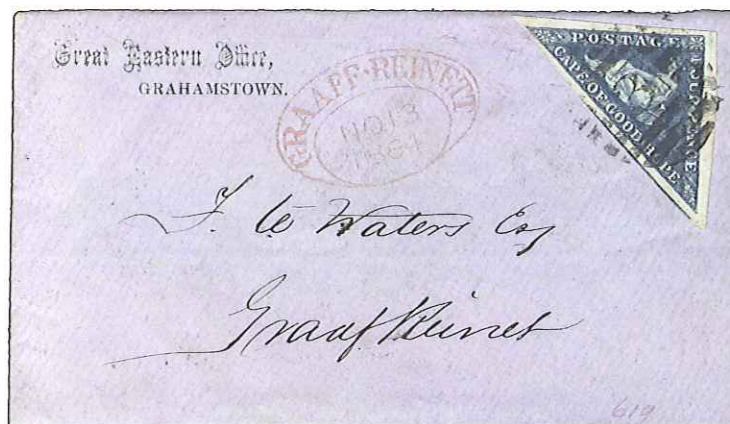 Great Eastern Office,
GRAHAMSTOWN.
GRAAFF-REINETT
NO 13
1861
POSTAGE
FOUR PENCE
CAPE OF GOOD HOPE
F. te Waters Esq
Graaf Reinet
619